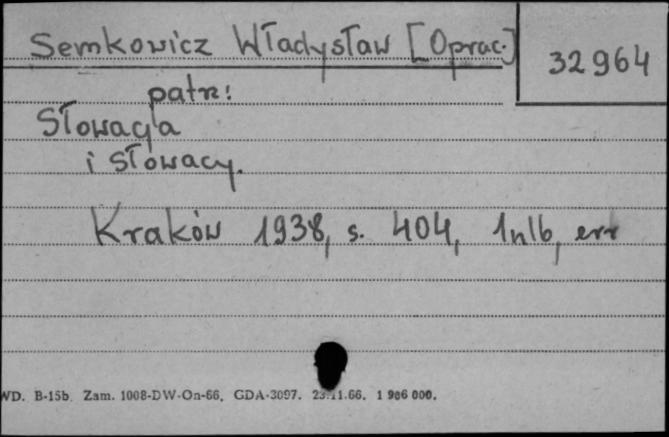 Semkowicz Władysław [Oprac.]
32964
patrz:
Słowacja
i Słowacy.
Kraków 1938, s. 404, 1nlb, err
WD. B-15b. Zam. 1008-DW-On-66. GDA-3097. 23.11.66. 1 986 000.